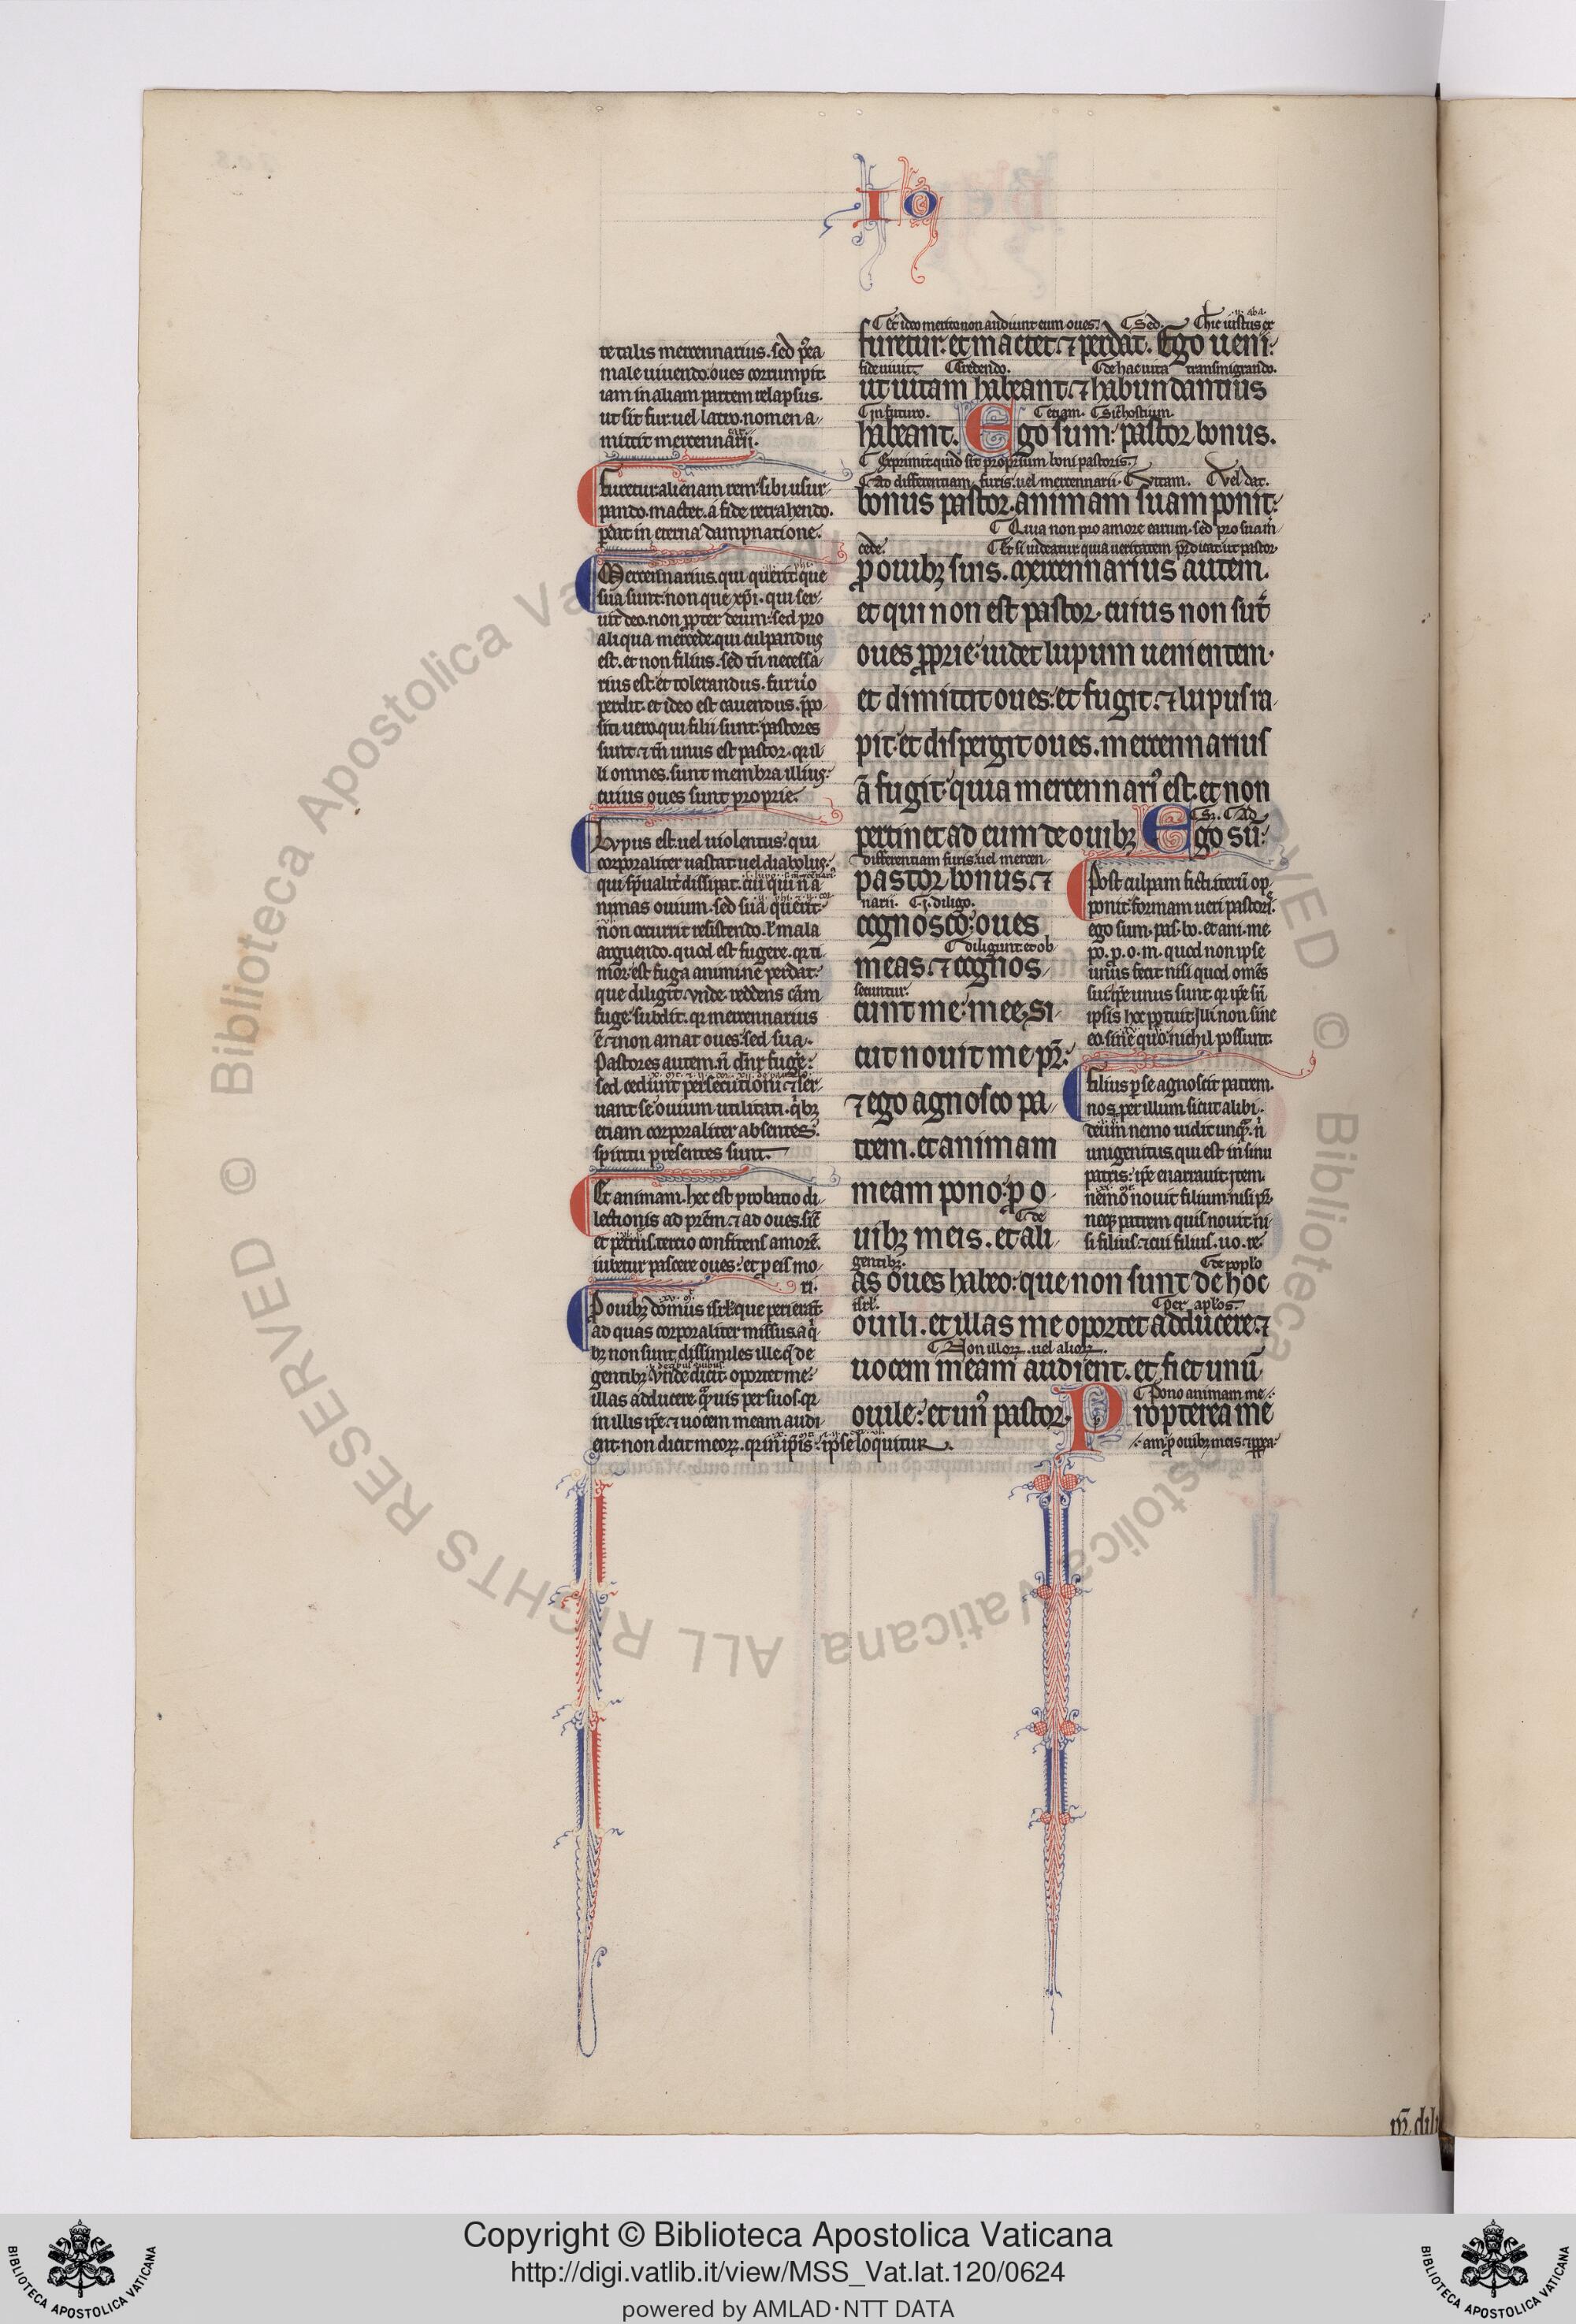 IO
te talis mercennarius. sed p̄ea
male uiuendo: oues corrumpit.
iam in aliam partem relapsus.
ut sit fur: uel latro. nomen a-
mittit mercennarii.
Furetur: alienam rem: sibi usur-
pando. mactet. a fide retrahendo.
ꝑdat in eterna dampnatione.
Mercennarius. qui querit que
sua sunt: non que xp̄i. qui ser-
uit deo. non ꝓpter deum: sed pro
aliqua mercede. qui culpandus
est. et non filius. sed tn̄ necessa-
rius est: et tolerandus. fur u̾o
perdit. et ideo est cauendus. p̄po-
siti uero qui filii sunt: pastores
sunt. ⁊ tn̄ unus est pastor. qr il-
li omnes. sunt membra illius:
cuius oues sunt proprie.
Lvpus est: uel uiolentus: qui
corporaliter uastat: uel diabolus:
qui sp̄ualit̾ dissipat. cui qui n̄ a-
nimas ouium. sed sua querit:
non occurrit resistendo. ł mala
arguendo. quod est fugere. qr ti-
mor est fuga animi: ne perdat:
que diligit. vnde reddens cām
fuge: subdit. qr mercennarius
ē. ⁊ non amat oues: sed sua.
Pastores autem. n̄ dn̄r fugere:
sed cedunt persecutioni: ⁊ ser-
uant se ouium utilitati. q̾bꝫ
etiam corporaliter absentes:
spiritu presentes sunt.
Et animam. hec est probatio di-
lectionis ad pr̄em: ⁊ ad oues. sic̄
et petrus. tercio confitens amorē.
iubetur pascere oues: et ꝓ eis mo-
ri.
P ouibꝫ domus isrł. que perierāt
ad quas corporaliter missus. a q̾-
bꝫ non sunt dissimiles ille. q̄ de
gentibꝫ. Vnde dicit. oportet me:
illas adducere. q̄uis per suos. qr
in illis ip̄e: ⁊ uocem meam audi-
ent. non dicit meoꝝ. qr in ip̄is: ipse loquitur.
Et ideo merito non audiunt eum oues. Sed. hic iustus ex
furetur: et mactet: ⁊ perdat. Ego ueni:
fide uiuit. Credendo. de hac uita transmigrando.
ut uitam habeant: ⁊ habundantius
in futuro. etiam. Sic̄ hostium.
habeant. Ego sum: pastor bonus.
Exprimit quid sit proprium boni pastoris.
Ad differentiam. furis. uel mercennarii. Vitam. Vel dat.
bonus pastor. animam suam ponit:
Quia non pro amore earum. sed pro sua m̄-
cede. Et si uideatur quia ueritatem p̄dicat ut pastor
ꝓ ouibꝫ suis. Mercennarius autem.
et qui non est pastor. cuius non sūt
oues ꝓprie: uidet lupum uenientem.
et dimittit oues: et fugit. ⁊ lupus ra-
pit: et dispergit oues. mercennarius
ā fugit: quia mercennari᾽ est. et non
pertinet ad eum de ouibꝫ Ego sū:
Sꝫ. Ad
differentiam furis. uel mercen-
pastor bonus: ⁊
narii. .i. diligo.
cognosco: oues
diligunt: et ob
meas. ⁊ cognos-
secuntur.
cunt me: mee. Si-
cut nouit me pr̄:
⁊ ego agnosco pa-
trem. et animam
meam pono: ꝓ o-
de
uibꝫ meis. et ali-
gentibꝫ. de poplo
as oues habeo: que non sunt de hoc
isrł. per aplos.
ouili. et illas me oportet adducere: ⁊
Non illoꝝ. uel alioꝝ.
uocem meam audient. et fiet unū
Pono animam me-
ouile: et un᾽ pastor. Propterea me
am ꝓ ouibꝫ meis: ⁊ ꝓpea
Post culpam ficti: iterū op-
ponit: formam ueri pastoris.
ego sum. pas. bo. et ani. me.
po. p. o. m. quod non ipse
unus fecit: nisi quod omēs
sui: ip̄e unus sunt. qr ip̄e sn̄
ipsis hoc potuit. Sui non sine
eo. sine quo nichil possunt.
Filius ꝑ se agnoscit patrem.
nos per illum. sicut alibi.
deum nemo uidit unq̄. n̄
unigenitus. qui est in sinu
patris: ip̄e enarrauit. item.
nemo nouit filium: nisi pr̄.
neqꝫ patrem quis nouit: ni-
si filius: ⁊ cui filius. uo. re.
pr̄. dili
Copyright © Biblioteca Apostolica Vaticana
http://digi.vatlib.it/view/MSS_Vat.lat.120/0624
powered by AMLAD·NTT DATA
BIBLIOTECA APOSTOLICA VATICANA
BIBLIOTECA APOSTOLICA VATICANA
© Biblioteca Apostolica Vaticana ALL RIGHTS RESERVED
© Biblioteca Apostolica Vaticana ALL RIGHTS RESERVED